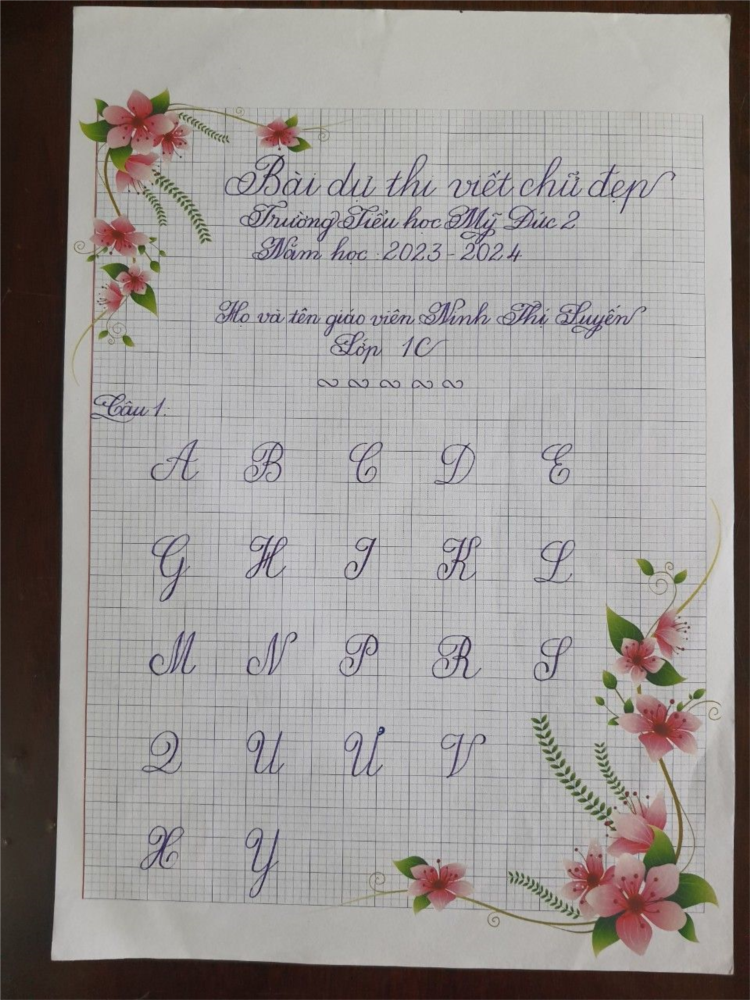 Bài dự thi viết chữ đẹp
Trường Tiểu học Mỹ Đức 2
Năm học 2023 - 2024
Họ và tên giáo viên Ninh Thị Luyến
Lớp 1C
Câu 1:
A B C D E
G H I K L
M N P R S
Q U Ư V
X Y